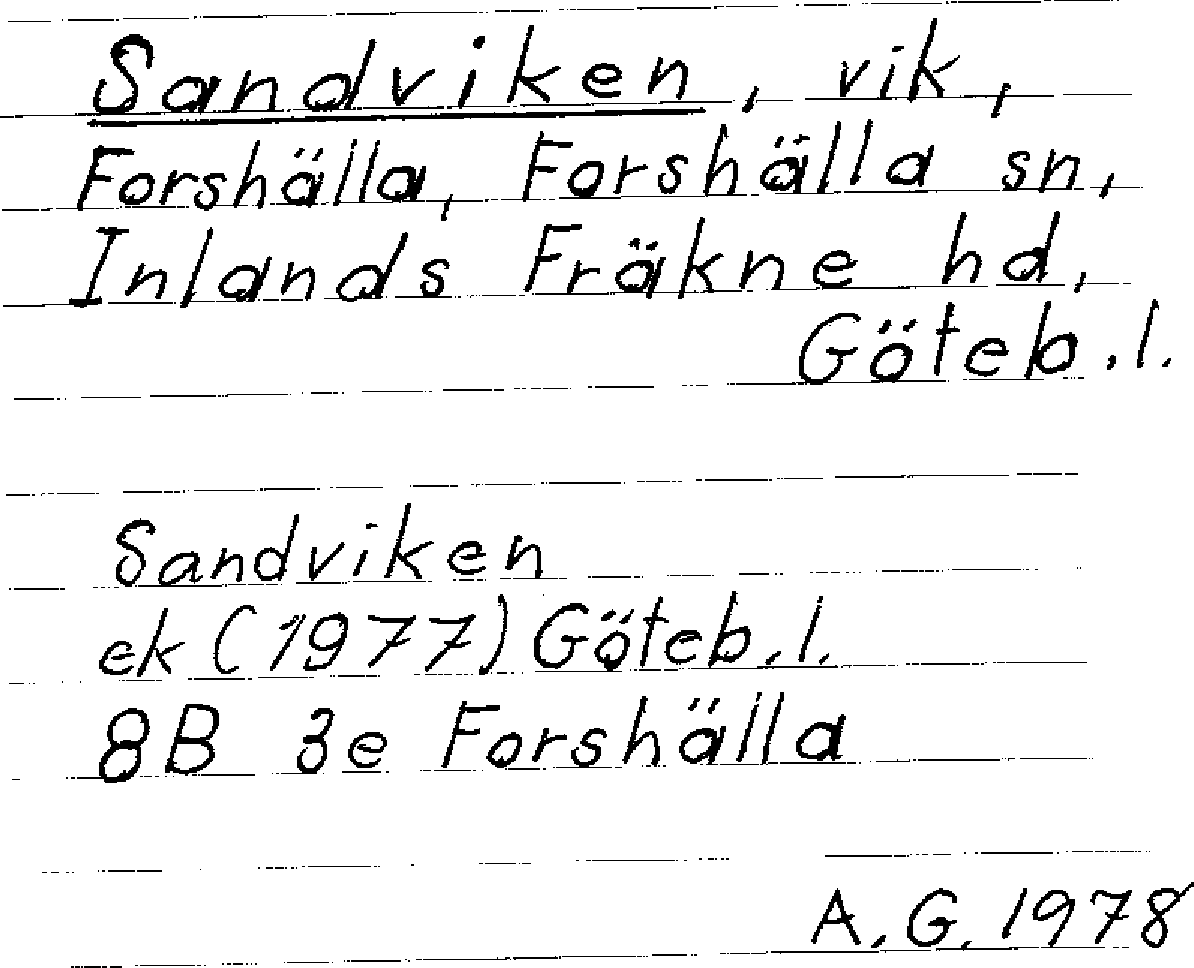 Sandviken, vik,
Forshälla, Forshälla sn,
Inlands Fräkne hd,
Göteb.l.
Sandviken
ek (1977) Göteb.l.
8B 3e Forshälla
A.G. 1978